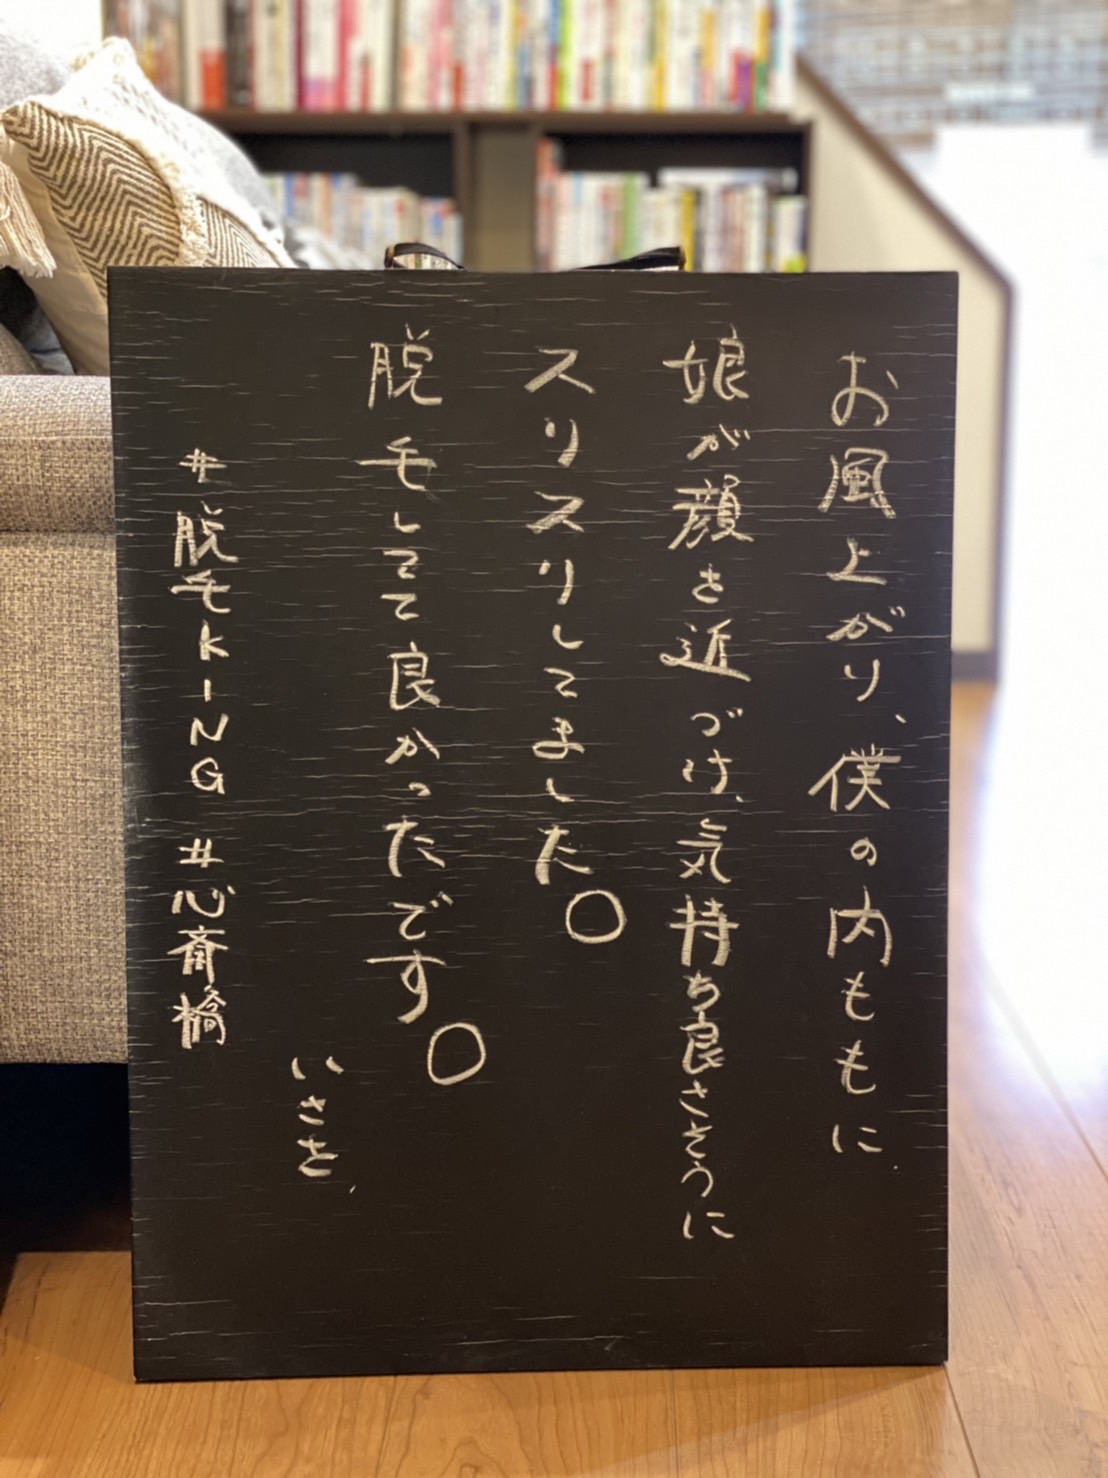 お風上がり、僕の内ももに
娘が顔を近づけ、気持ち良さそうに
スリスリしてました。
脱毛してて良かったです。
いさを
#脱毛KING #心斎橋